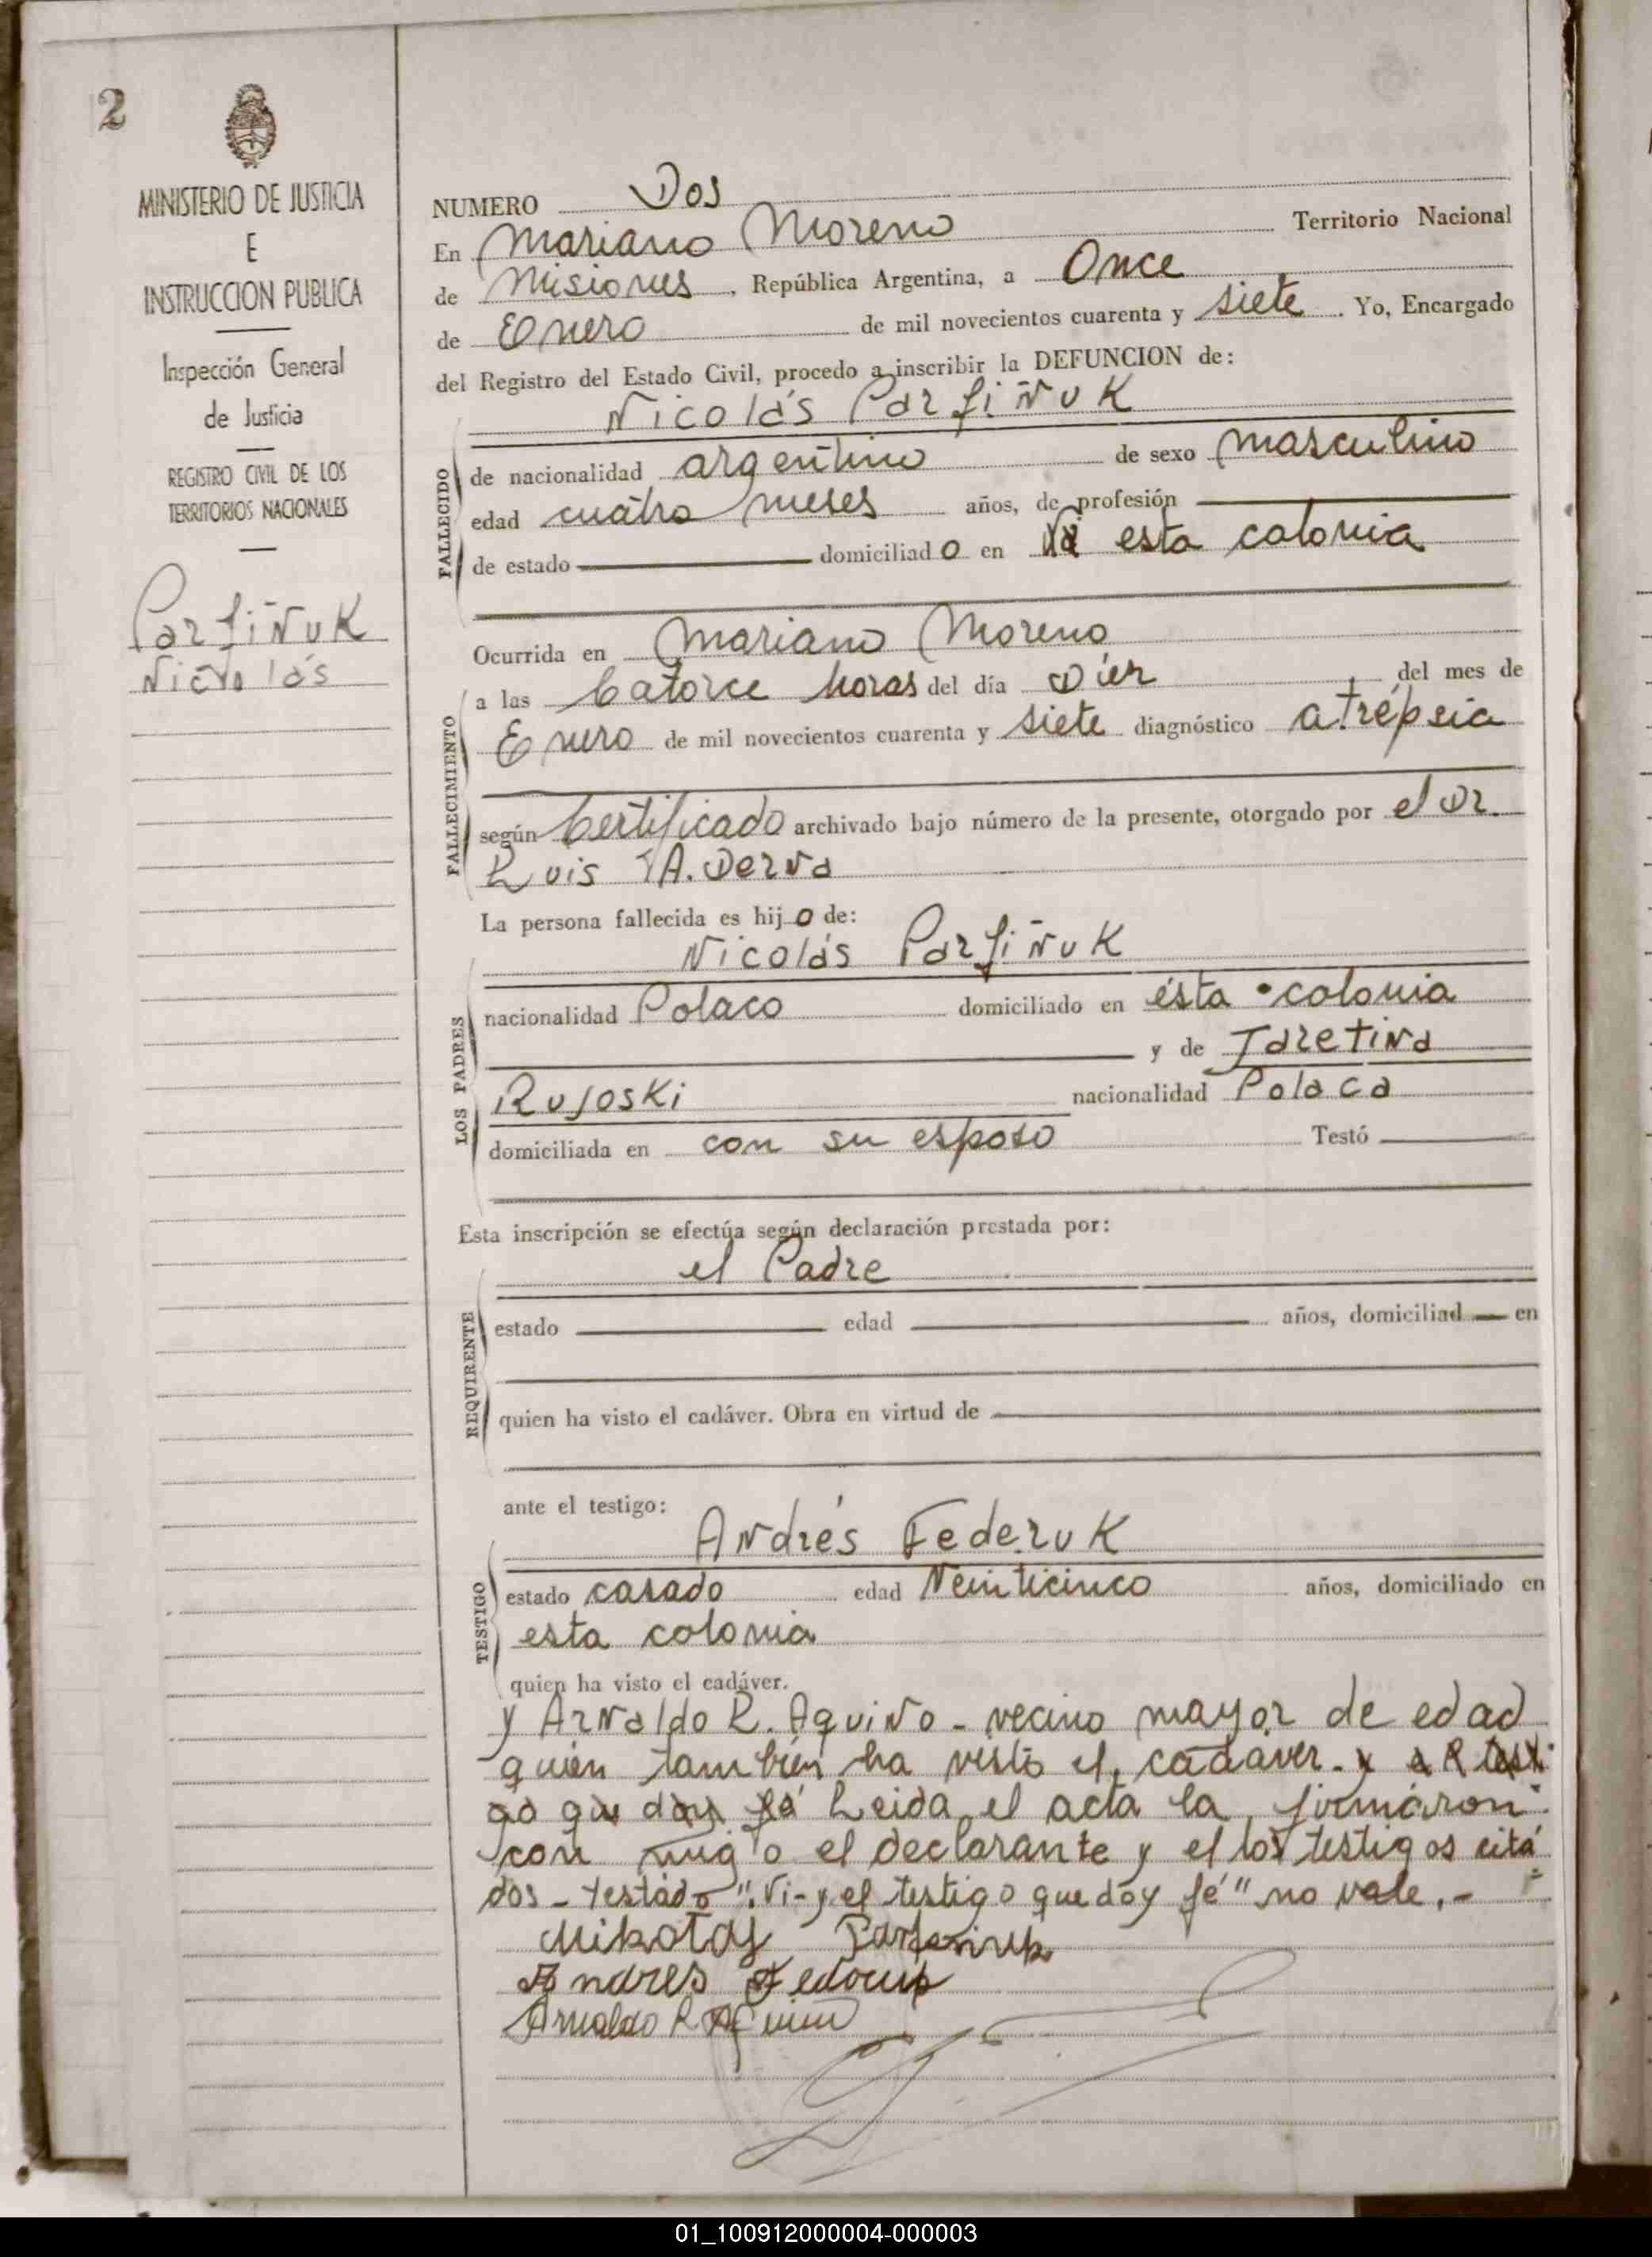 2
MINISTERIO DE JUSTICIA
E
INSTRUCCION PUBLICA
Inspección General
de Justicia
REGISTRO CIVIL DE LOS
TERRITORIOS NACIONALES
Parfiñuk
Nicolás
NUMERO Dos
En Mariano Moreno Territorio Nacional
de Misiones, República Argentina, a Once
de Enero de mil novecientos cuarenta y siete. Yo, Encargado
del Registro del Estado Civil, procedo a inscribir la DEFUNCION de:
Nicolás Parfiñuk
FALLECIDO
de nacionalidad argentino de sexo masculino
edad cuatro meses años, de profesión
de estado domiciliado en Vi esta colonia
Ocurrida en Mariano Moreno
FALLECIMIENTO
a las Catorce horas del día Diez del mes de
Enero de mil novecientos cuarenta y siete diagnóstico atrépsia
según Certificado archivado bajo número de la presente, otorgado por el Dr.
Luis A. Derna
La persona fallecida es hijo de:
Nicolás Parfiñuk
LOS PADRES
nacionalidad Polaco domiciliado en ésta colonia
y de Jaretina
Rujoski nacionalidad Polaca
domiciliada en con su esposo Testó
Esta inscripción se efectúa según declaración prestada por:
el Padre
REQUIRENTE
estado edad años, domiciliad en
quien ha visto el cadáver. Obra en virtud de
ante el testigo:
Andrés Federuk
TESTIGO
estado casado edad Veinticinco años, domiciliado en
esta colonia
quien ha visto el cadáver.
y Arnaldo R. Aquino - vecino mayor de edad
quién también ha visto el cadáver. y el testi
go que doy fé Leida el acta la firmáron
con migo el declarante y el los testigos citá
dos - testado "Vi - y el testigo que doy fé" no vale.-
Mikołaj Parfeniuk
Andres Fedoruk
Arnaldo R Aquino
01_100912000004-000003